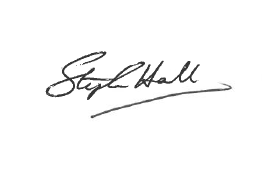 Stephen Hall